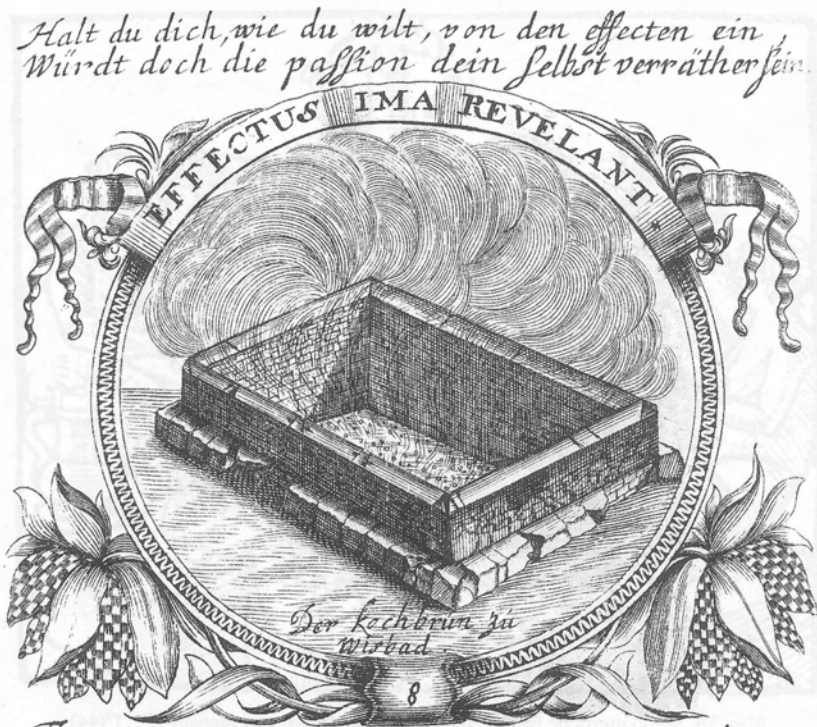 Halt du dich, wie du wilt, von den effecten ein,
Würdt doch die passion dein selbst verräther sein.
EFFECTUS IMA REVELANT.
Der kochbrun zu
Wisbad.
8